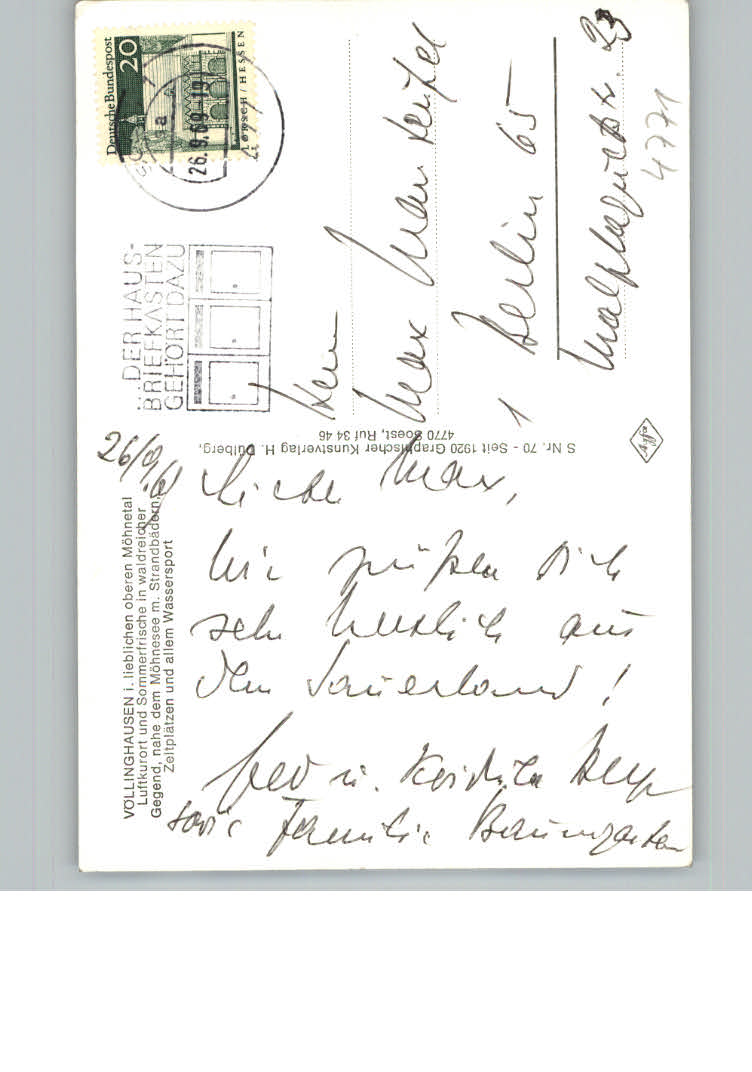 VÖLLINGHAUSEN i. lieblichen oberen Möhnetal
Luftkurort und Sommerfrische in waldreicher
Gegend, nahe dem Möhnesee m. Strandbädern,
Zeltplätzen und allem Wassersport
26/9.69
Lieber Max,
Wir grüßen Dich
sehr herzlich aus
dem Sauerland!
u.
sowie Familie Baumgarten
S Nr. 70 - Seit 1920 Graphischer Kunstverlag H. Dülberg,
4770 Soest, Ruf 34 46
Agfa
Deutsche Bundespost
20
LORSCH / HESSEN
a
26.9.69-19
DER HAUS-
BRIEFKASTEN
GEHÖRT DAZU
Herrn
Max
1 Berlin 65
Malplaquetstr. 23
4771